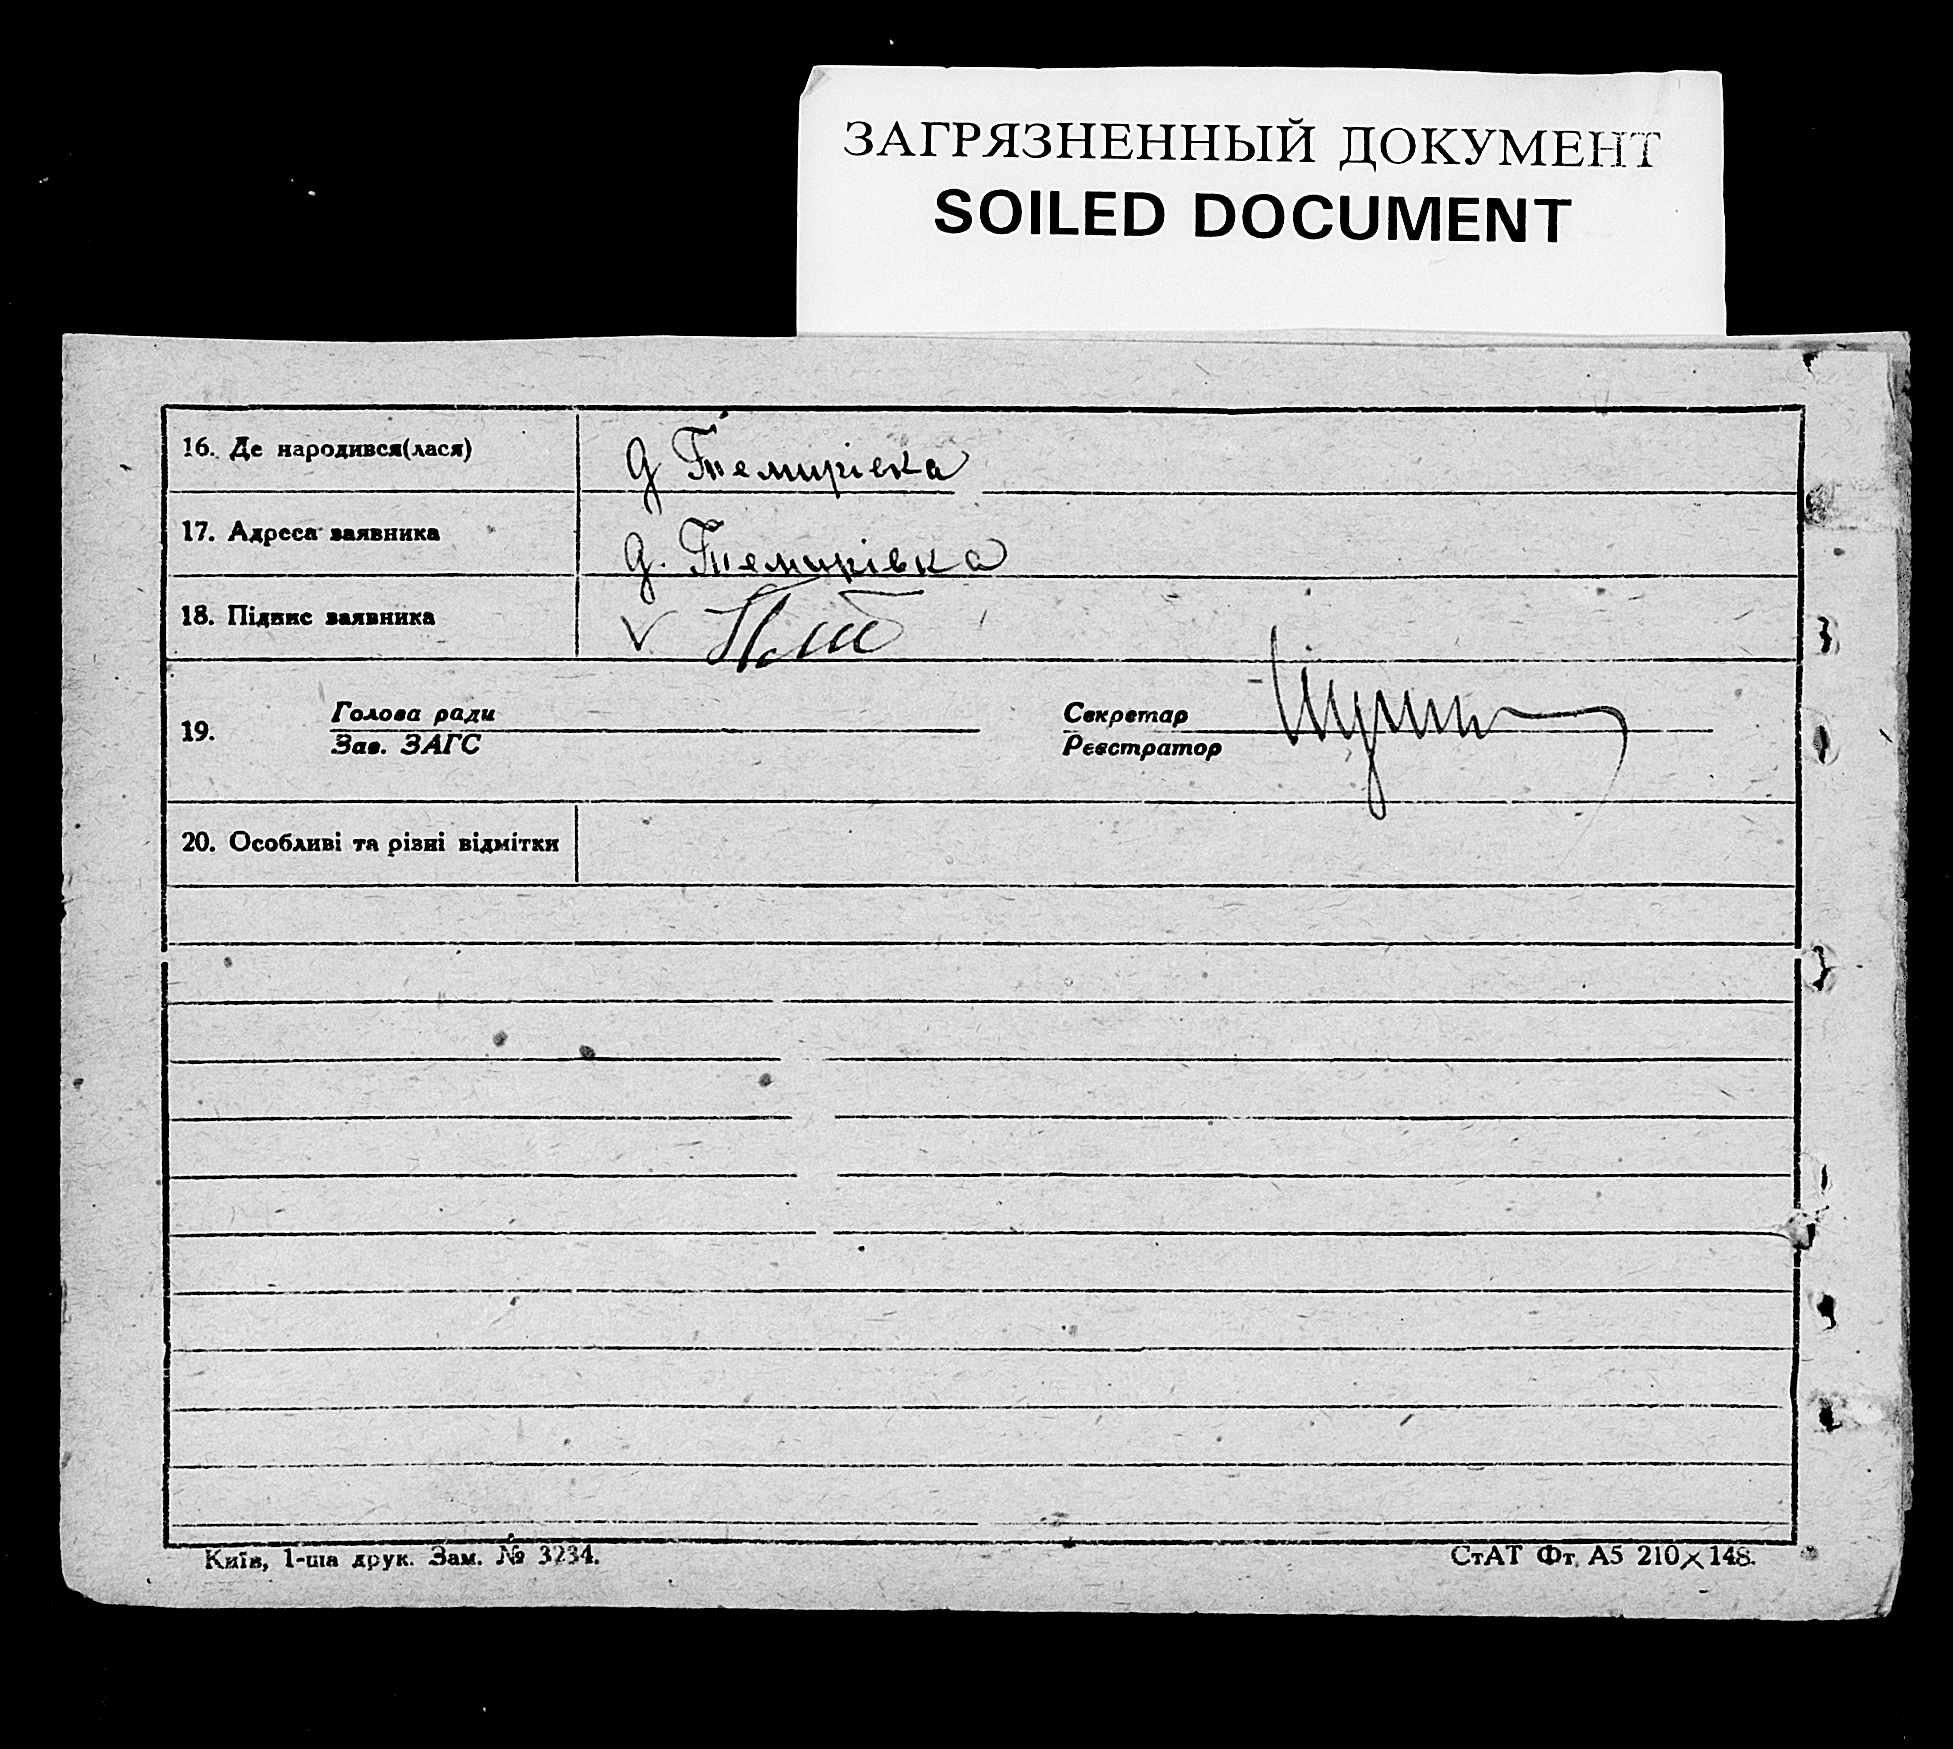 ЗАГРЯЗНЕННЫЙ ДОКУМЕНТ
SOILED DOCUMENT
16. Де народився(лася) д Темирівка
17. Адреса заявника д. Темирівка
18. Підпис заявника
19. Голова ради Секретар
Зав. ЗАГС Реєстратор
20. Особливі та різні відмітки
Київ, 1-ша друк. Зам. № 3234. СтАТ Фт. А5 210×148.